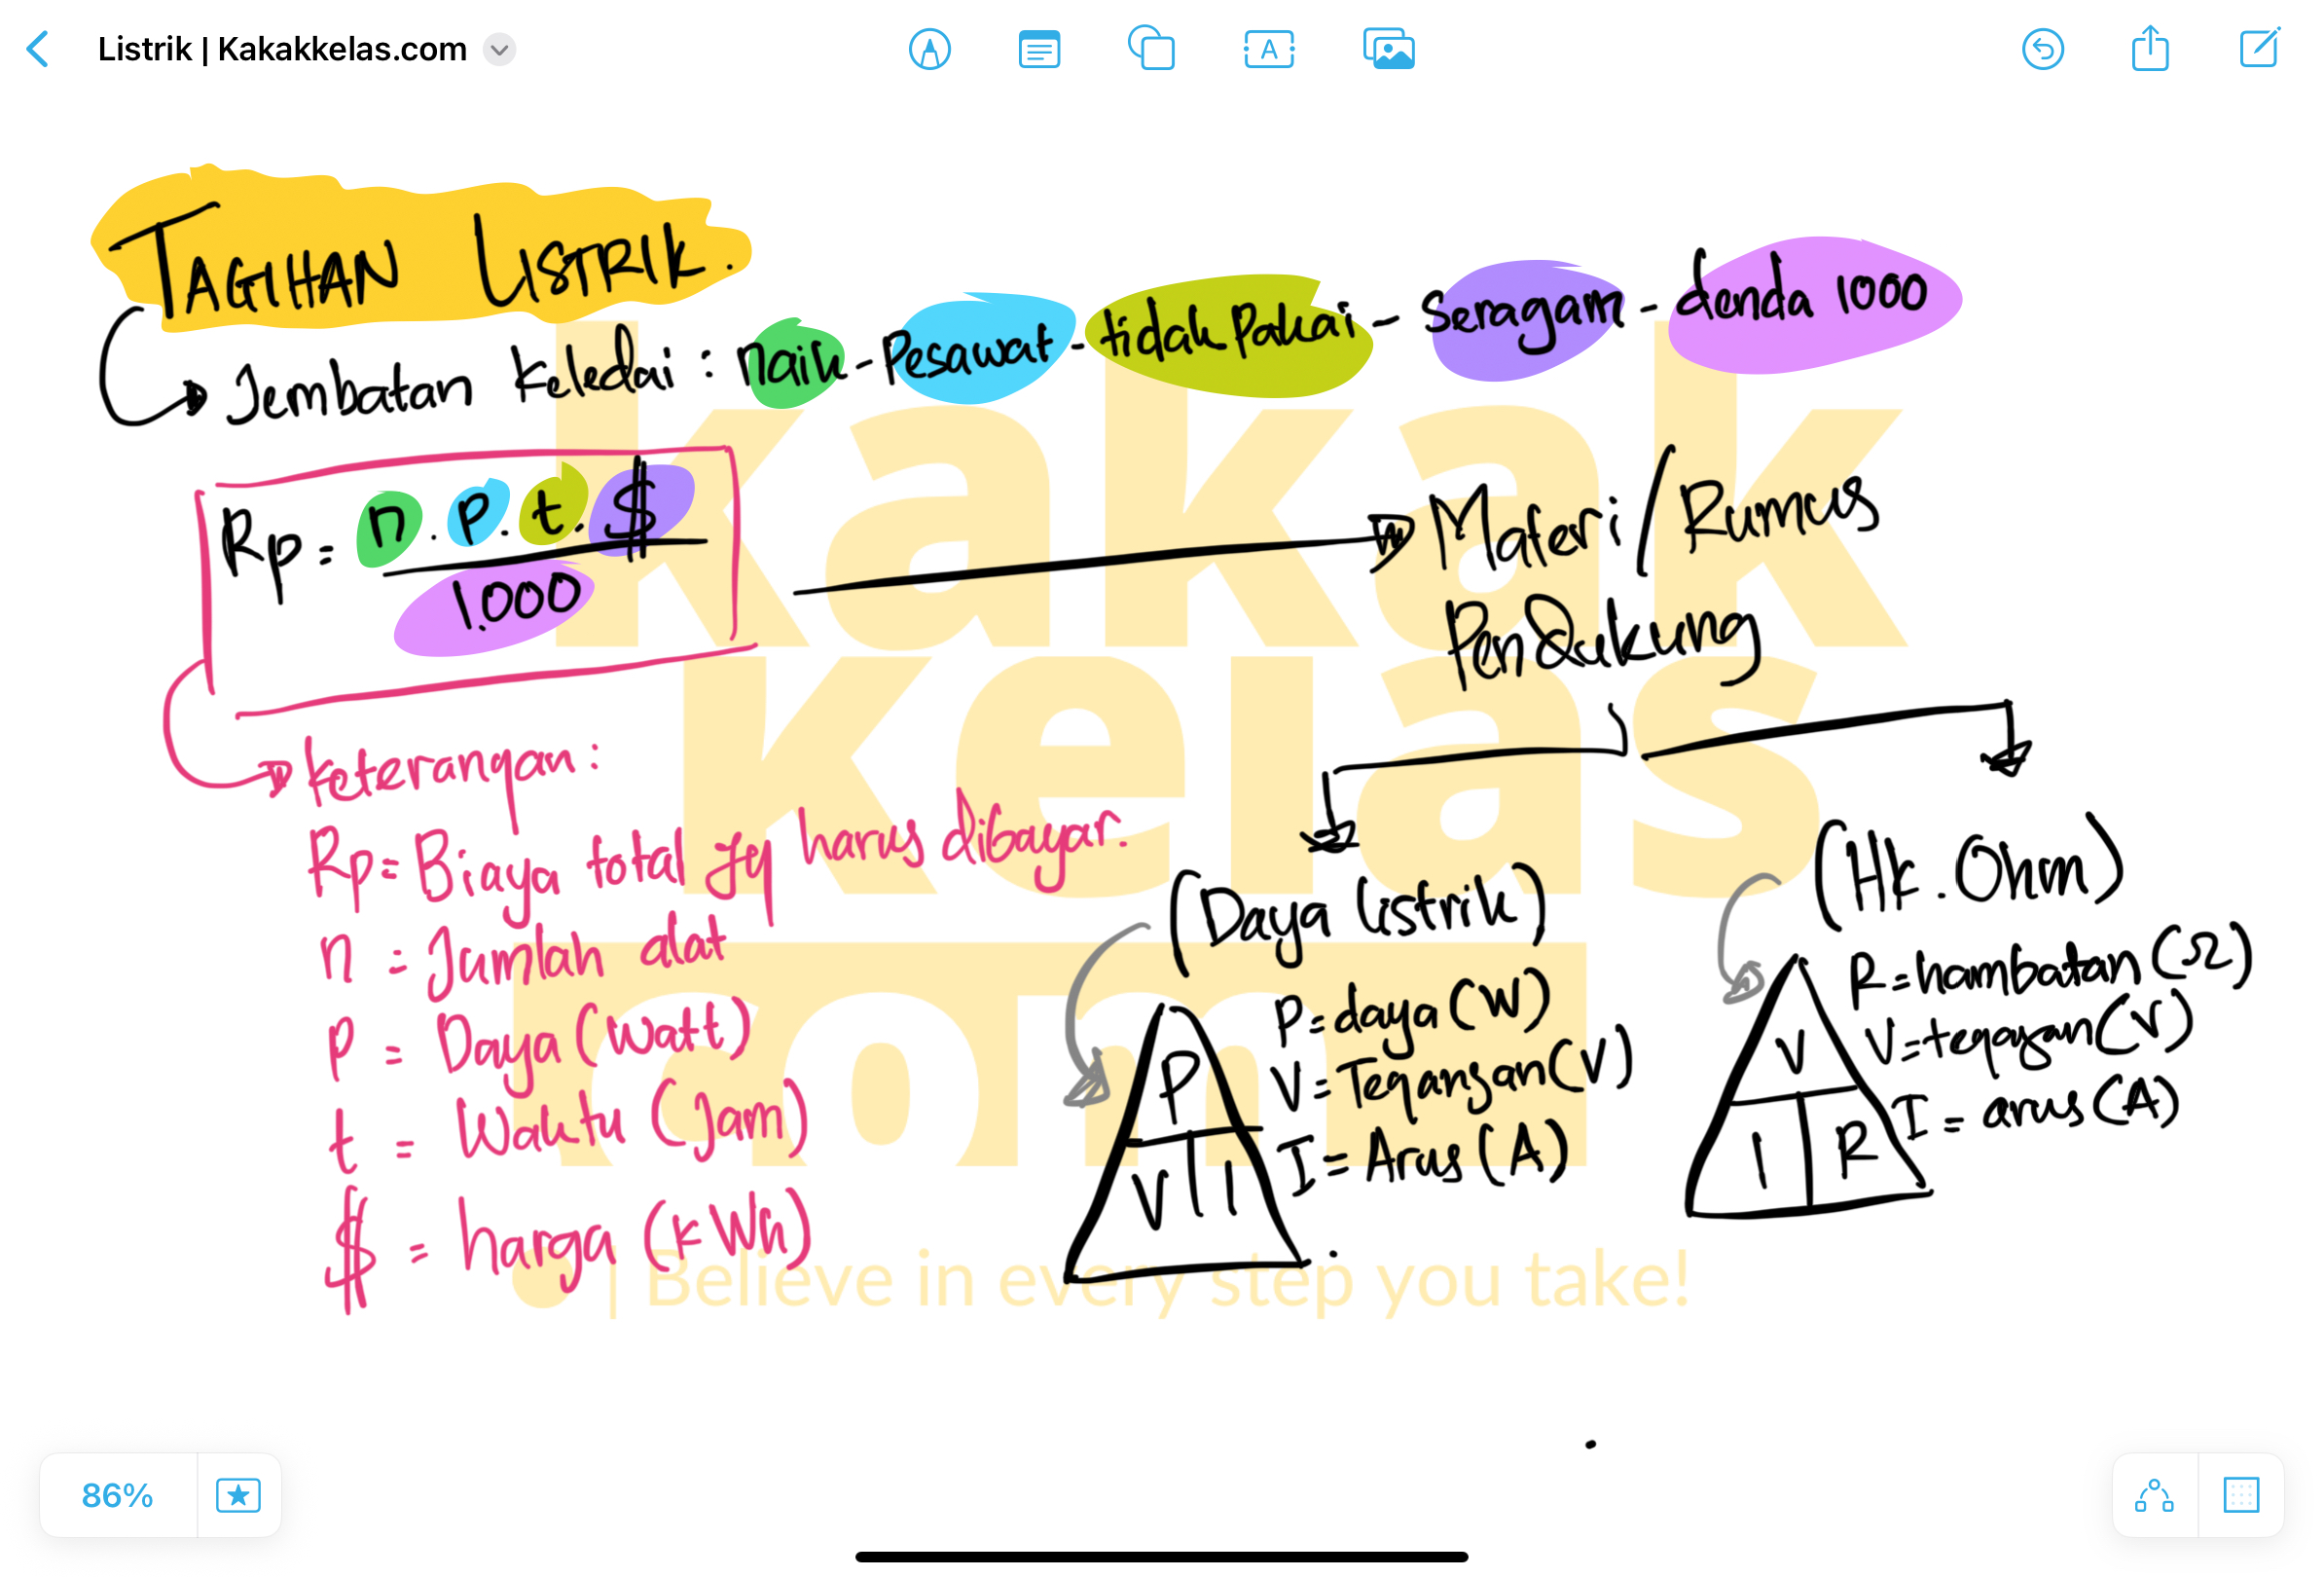 Listrik | Kakakkelas.com
TAGIHAN LISTRIK.
Jembatan Keledai : naik - Pesawat - tidak Pakai - Seragam - denda 1000
Rp = n . p . t . $
1.000
Materi / Rumus
Pendukung
keterangan:
Rp = Biaya total yg harus dibayar.
n = Jumlah alat
P = Daya (Watt)
t = Waktu (Jam)
$ = harga (kWh)
(Daya listrik)
P
V I
P = daya (W)
V = Tegangan (V)
I = Arus (A)
(Hk. Ohm)
V
I R
R = hambatan (Ω)
V = tegangan (V)
I = arus (A)
kakak
kelas
com
| Believe in every step you take!
86%